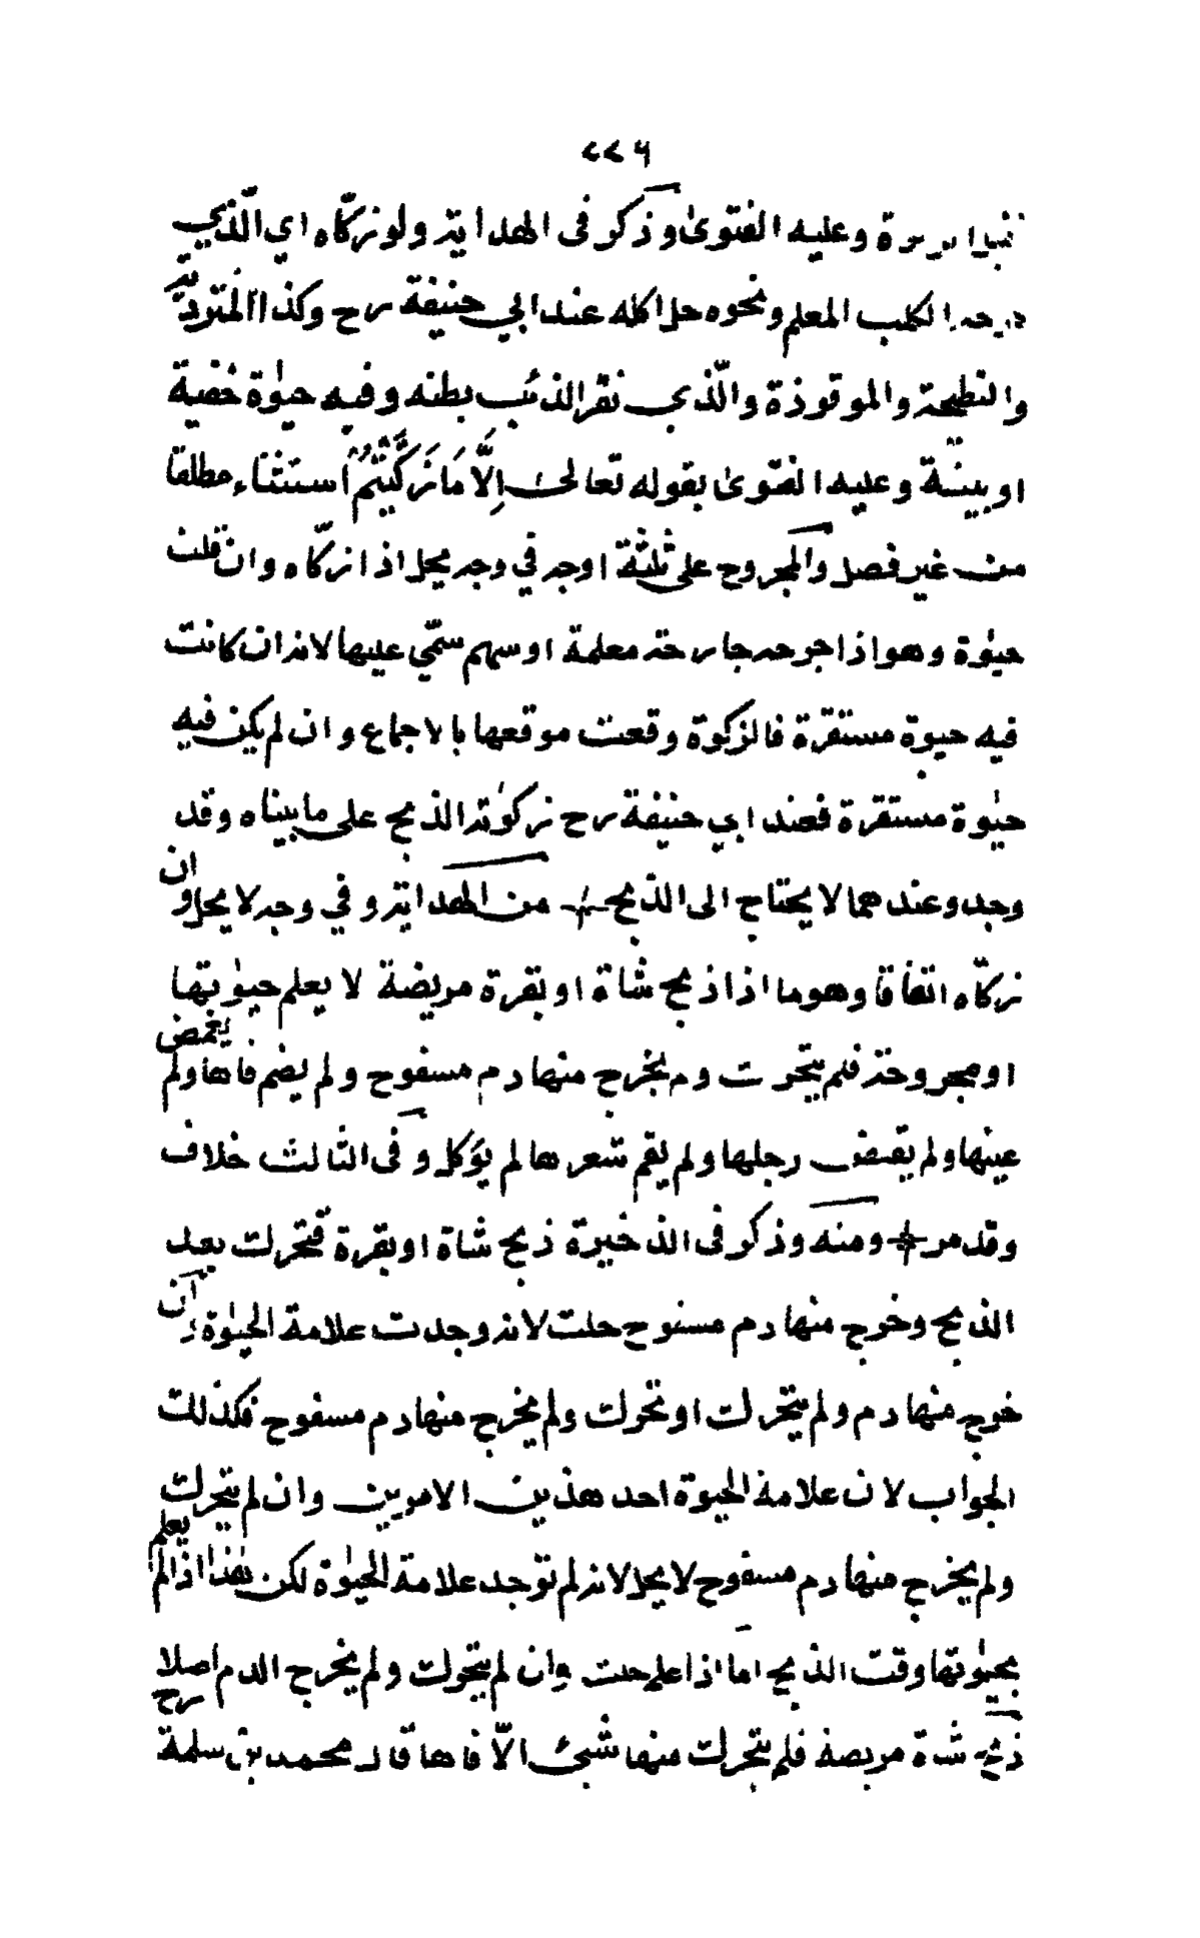 ٢٢٦
وعليه الفتوىٰ وذكر فى الهداية ولو زكّاه اي الّذي
الكلب المعلم ونحوه حل اكله عند ابي حنيفة رح وكذا المتردية
والنطيحة والموقوذة والّذي نقر الذئب بطنه وفيه حيٰوة خفية
او بينة وعليه الفتوىٰ بقوله تعالىٰ اِلَّا مَا زَكَّيْتُمْ استثناء مطلقا
من غير فصل والمجروح على ثلثة اوجه في وجه يحل اذا زكّاه وان قلت
حيٰوة وهو اذا جرحه جارحة معلمة او سهم سمّي عليها لانه ان كانت
فيه حيوة مستقرة فالزكوة وقعت موقعها بالاجماع وان لم يكن فيه
حيٰوة مستقرة فعند ابي حنيفة رح زكوٰته الذبح على ما بيناه وقد
وجد وعندهما لا يحتاج الى الذبح من الهداية وفي وجه لا يحل وان
زكّاه اتفاقا وهو ما اذا ذبح شاة او بقرة مريضة لا يعلم حيوٰتها
او مجروحة فلم يتحرك ولم يخرج منها دم مسفوح ولم يضم فاها ولم يغمض
عينها ولم يقبض رجلها ولم يقم شعرها لم يؤكل وفى الثالث خلاف
وقد مر ومنه وذكر فى الذخيرة ذبح شاة او بقرة فتحركت بعد
الذبح وخرج منها دم مسفوح حلت لانه وجدت علامة الحيٰوة وان
خرج منها دم ولم يتحرك او تحركت ولم يخرج منها دم مسفوح فكذلك
الجواب لان علامة الحيوة احد هذين الامرين وان لم يتحرك
ولم يخرج منها دم مسفوح لا يحل لانه لم توجد علامة الحيٰوة لكن هٰذا اذا لم يعلم
بحيوٰتها وقت الذبح اما اذا علم حلت وان لم يتحرك ولم يخرج الدم اصلا رح
ذبح شاة مريضة فلم يتحرك منها شيئ الّا فاها قال محمد بن سلمة